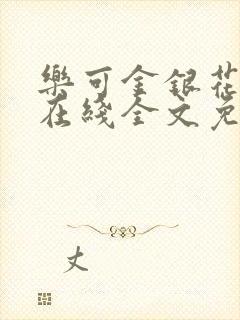 樂可金銀花
在綫全文免
丈